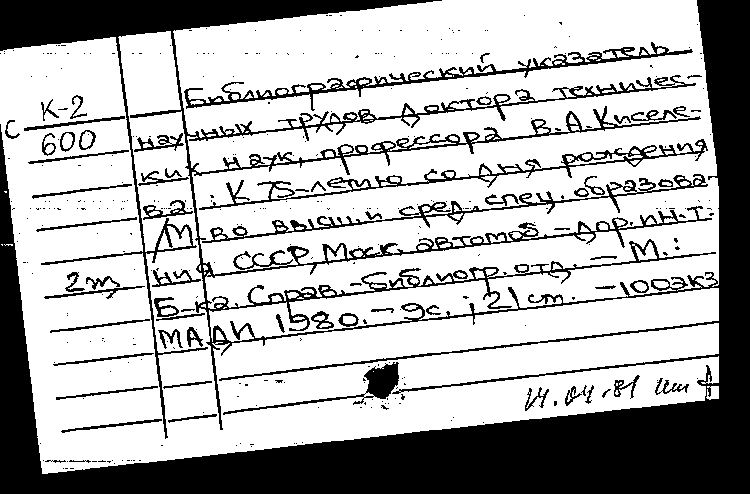 Библиографический указатель
С К-2
600
научных трудов доктора техничес-
ких наук, профессора В.А.Киселе-
ва : К 75-летию со дня рождения
/М-во высш. и сред. спец. образова-
2 т,
ния СССР, Моск. автомоб.-дор. ин.т.
Б-ка. Справ.-библиогр. отд. — М.:
МАДИ, 1980. – 9с. ; 21 ст. – 100экз
14.04.81